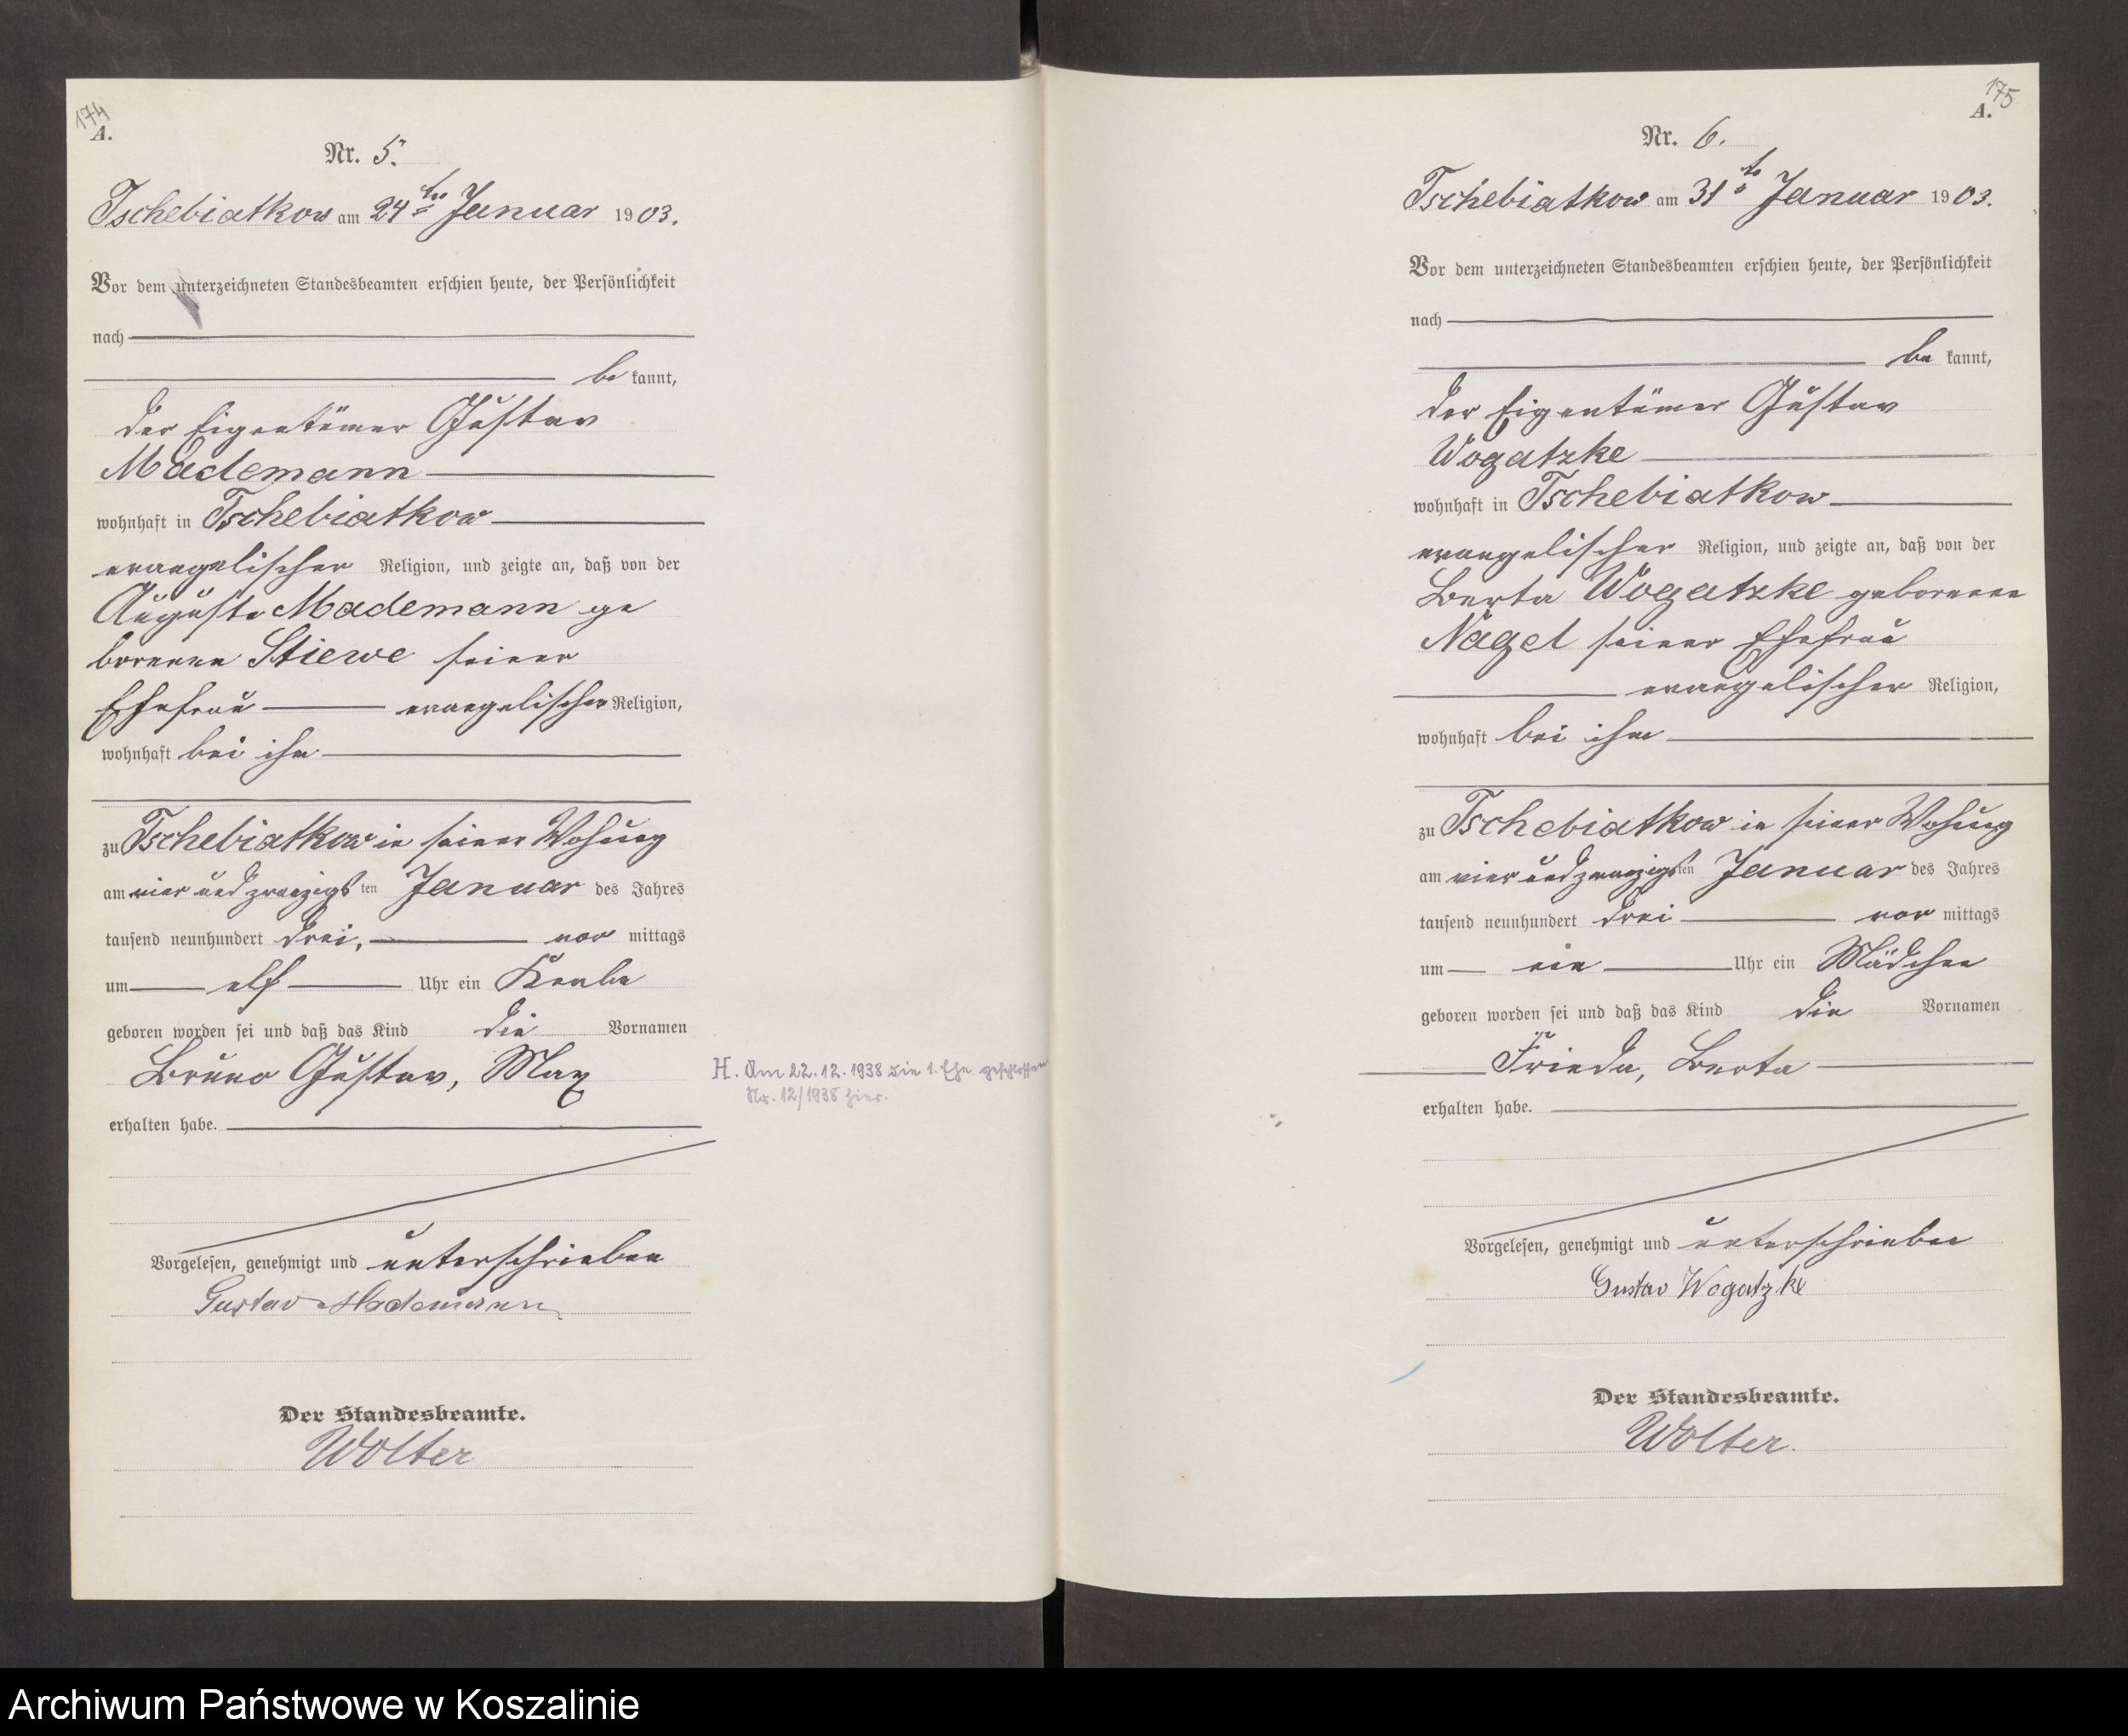 174
A.
Nr. 5.
Tschebiatkow am 24ten Januar 1903.
Vor dem unterzeichneten Standesbeamten erschien heute, der Persönlichkeit
nach
be kannt,
der Eigentümer Gustav
Mademann
wohnhaft in Tschebiatkow
evangelischer Religion, und zeigte an, daß von der
Auguste Mademann ge
borenen Stiewe seiner
Ehefrau evangelischer Religion,
wohnhaft bei ihm
zu Tschebiatkow in seiner Wohung
am vier und zwanzigsten Januar des Jahres
tausend neunhundert drei, vor mittags
um elf Uhr ein Knabe
geboren worden sei und daß das Kind die Vornamen
Bruno Gustav, Max
erhalten habe.
Vorgelesen, genehmigt und unterschrieben
Gustav Mademann
Der Standesbeamte.
Wolter
H. Am 22.12.1938 die 1. Ehe geschlossen
Nr. 12/1938 hier.
175
A.
Nr. 6.
Tschebiatkow am 31ten Januar 1903.
Vor dem unterzeichneten Standesbeamten erschien heute, der Persönlichkeit
nach
be kannt,
der Eigentümer Gustav
Wogatzke
wohnhaft in Tschebiatkow
evangelischer Religion, und zeigte an, daß von der
Berta Wogatzke geborenen
Nagel seiner Ehefrau
evangelischer Religion,
wohnhaft bei ihm
zu Tschebiatkow in seiner Wohung
am vier und zwanzigsten Januar des Jahres
tausend neunhundert drei vor mittags
um ein Uhr ein Mädchen
geboren worden sei und daß das Kind die Vornamen
Frieda, Berta
erhalten habe.
Vorgelesen, genehmigt und unterschrieben
Gustav Wogatzke
Der Standesbeamte.
Wolter.
Archiwum Państwowe w Koszalinie